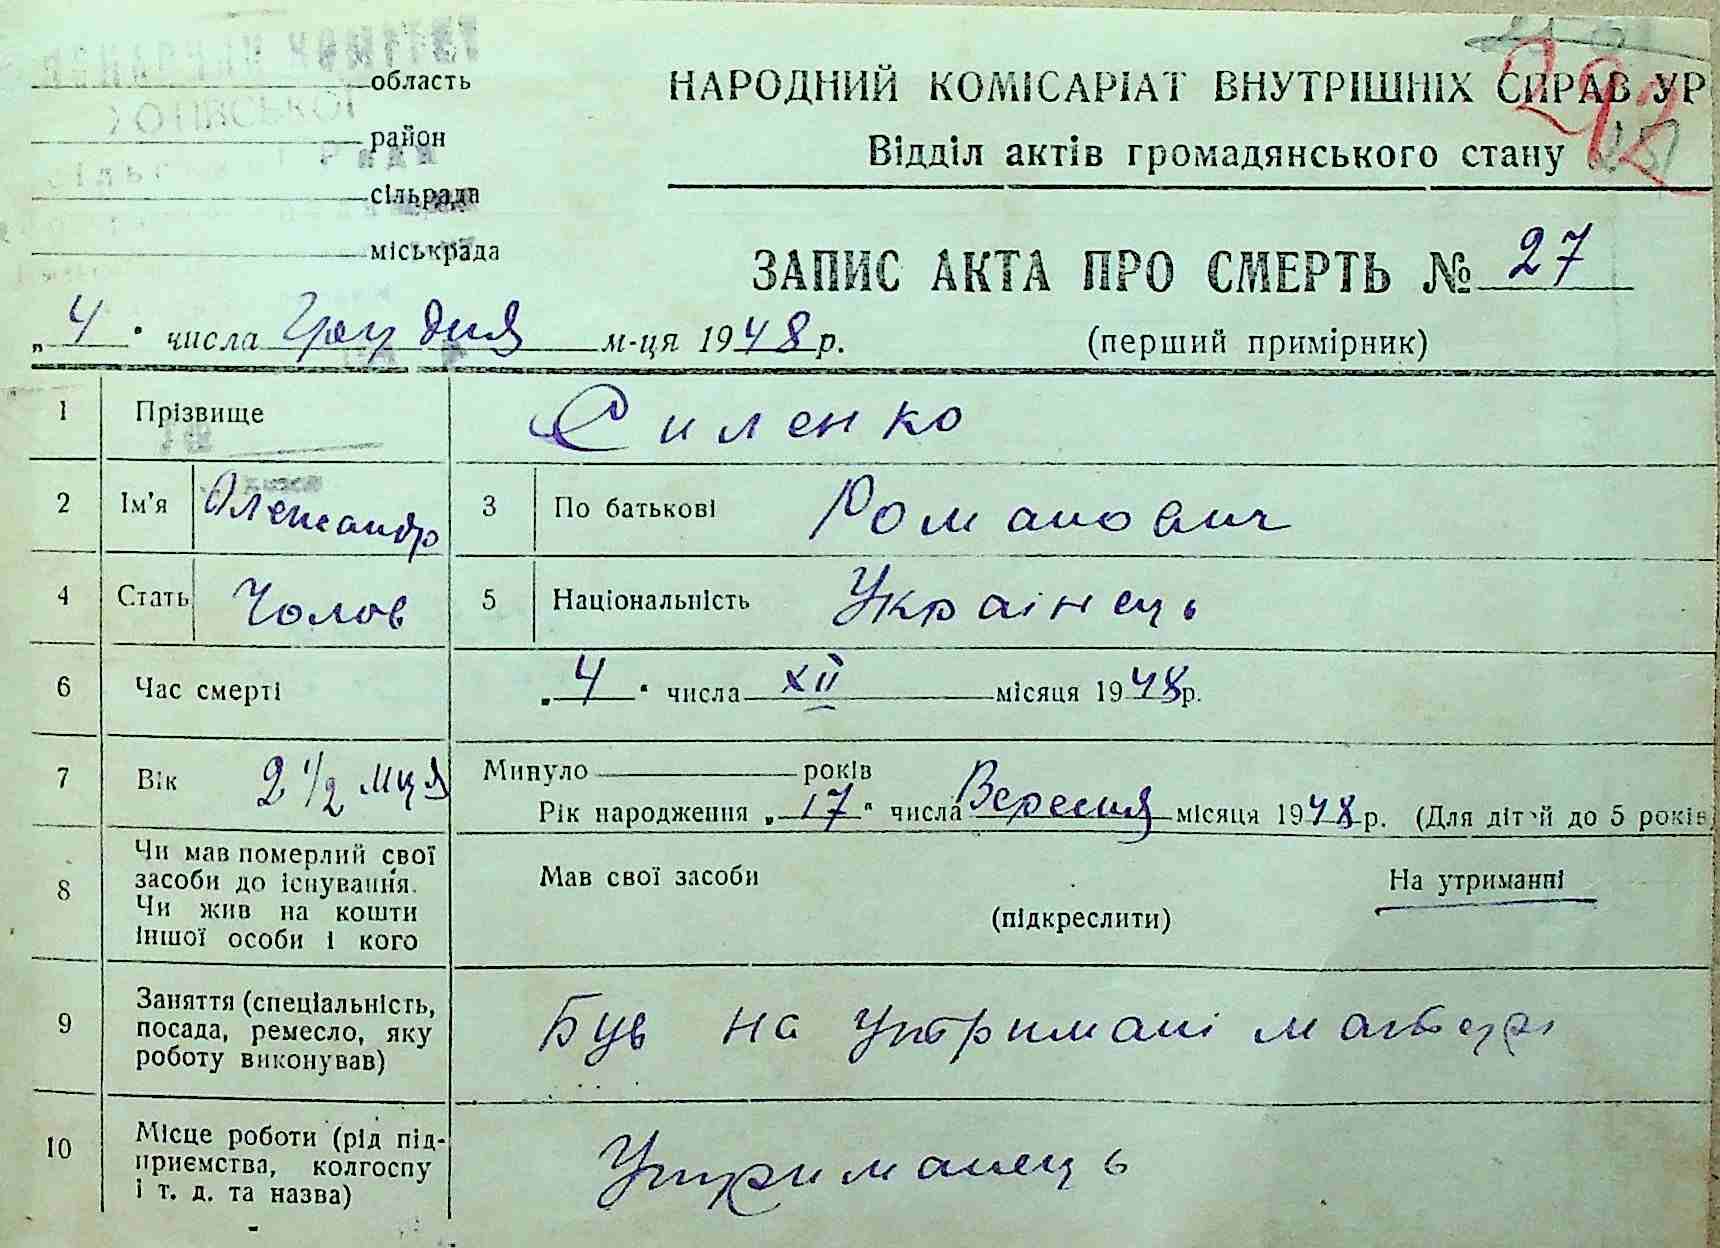 область
район
сільрада
міськрада
НАРОДНИЙ КОМІСАРІАТ ВНУТРІШНІХ СПРАВ УР
292
Відділ актів громадянського стану
ЗАПИС АКТА ПРО СМЕРТЬ № 27
„4“ числа Грудня м-ця 1948 р.
(перший примірник)
1 Прізвище Силенко
2 Ім'я Олександр 3 По батькові Романович
4 Стать Чолов 5 Національність Українець
6 Час смерті „4“ числа XII місяця 1948 р.
7 Вік 2 1/2 мця Минуло років
Рік народження „17“ числа Вересня місяця 1948 р. (Для дітей до 5 років
8 Чи мав померлий свої
засоби до існування.
Чи жив на кошти
іншої особи і кого
Мав свої засоби На утриманні
(підкреслити)
9 Заняття (спеціальність,
посада, ремесло, яку
роботу виконував)
Був на утримані матері
10 Місце роботи (рід під-
приємства, колгоспу
і т. д. та назва)
Утриманець